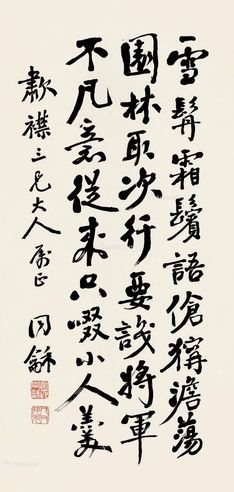 雪髯霜鬢語傖獰澹蕩
園林取次行要識將軍
不凡意從來只啜小人羹
歗襟三兄大人屬正
同龢